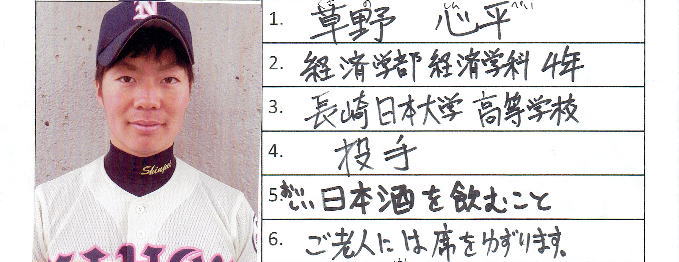 N
1. 草野 心平
2. 経済学部 経済学科 4年
3. 長崎日本大学 高等学校
4. 投手
5. おいしい日本酒を飲むこと
6. ご老人には席をゆずります。
Shinpei